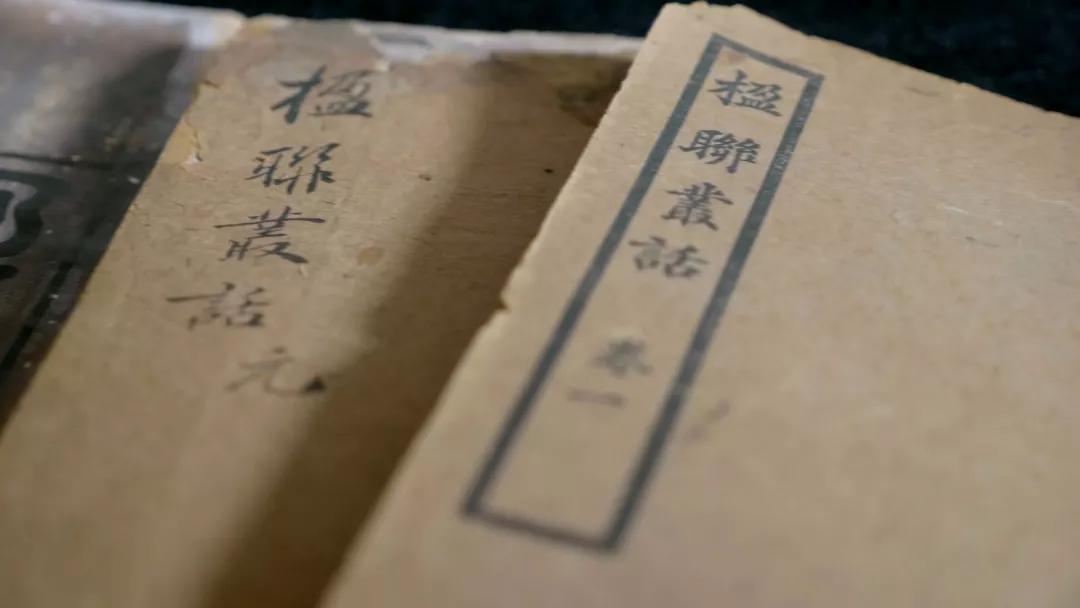 楹聯叢話元
楹聯叢話
卷一